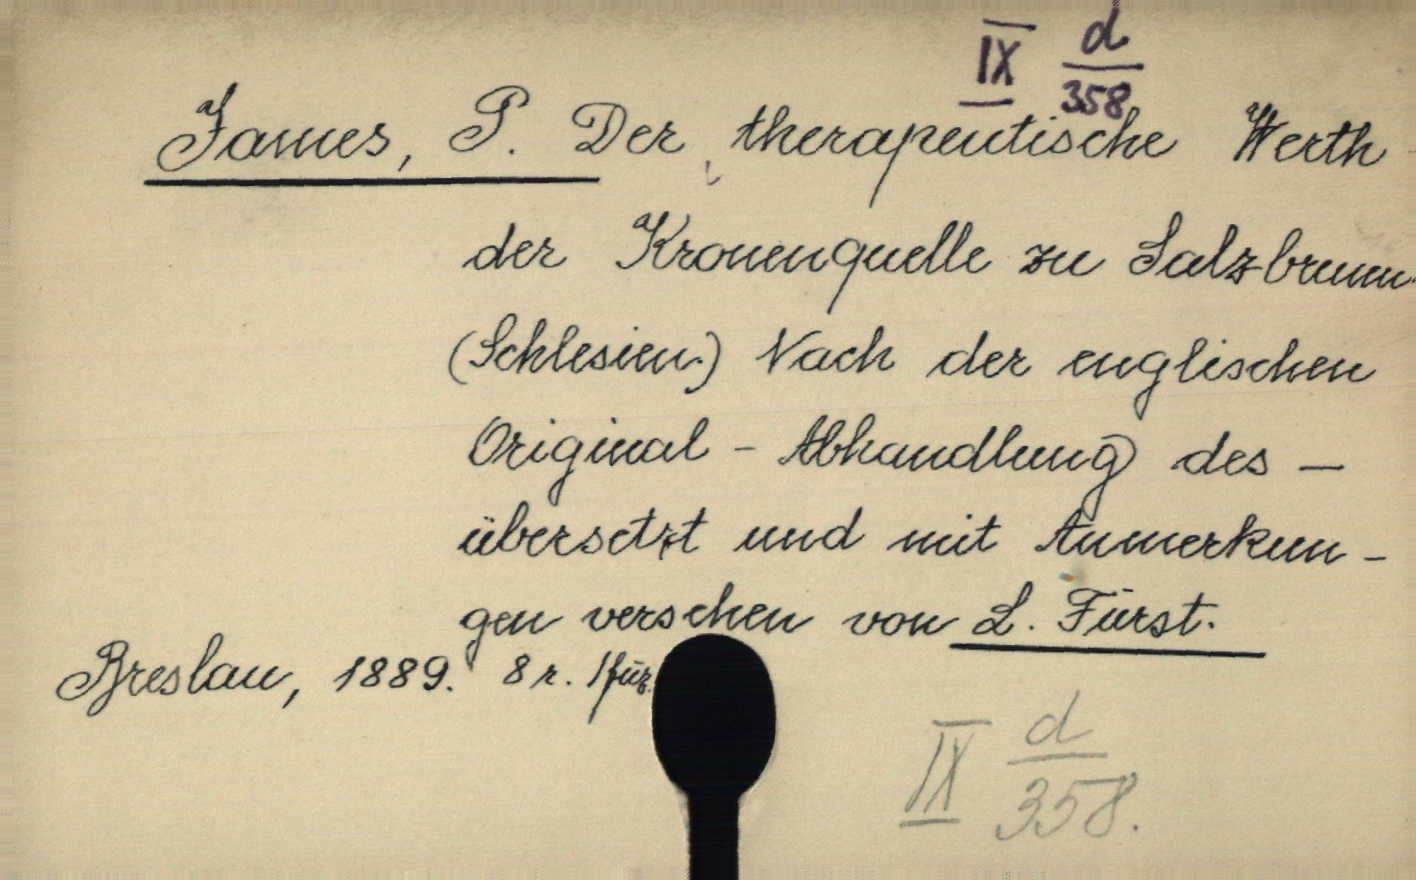 IX d/358
James, P. Der therapeutische Werth
der Kronenquelle zu Salzbrunn
(Schlesien.) Nach der englischen
Original - Abhandlung des —
übersetzt und mit Anmerkun-
gen versehen von L. Fürst.
Breslau, 1889. 8r. 1 füz.
IX d/358.